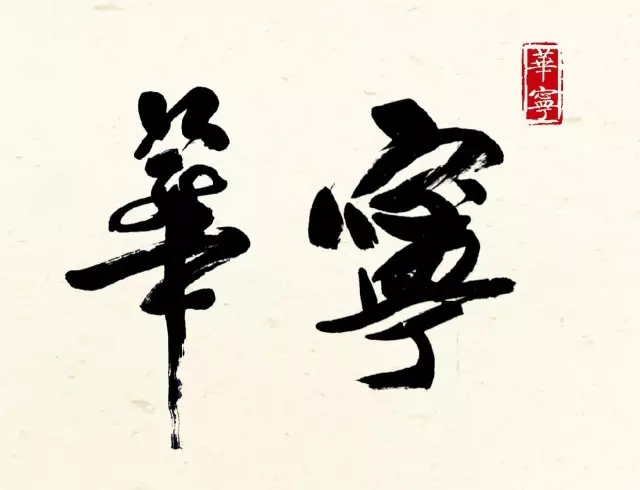 華寧
華寧